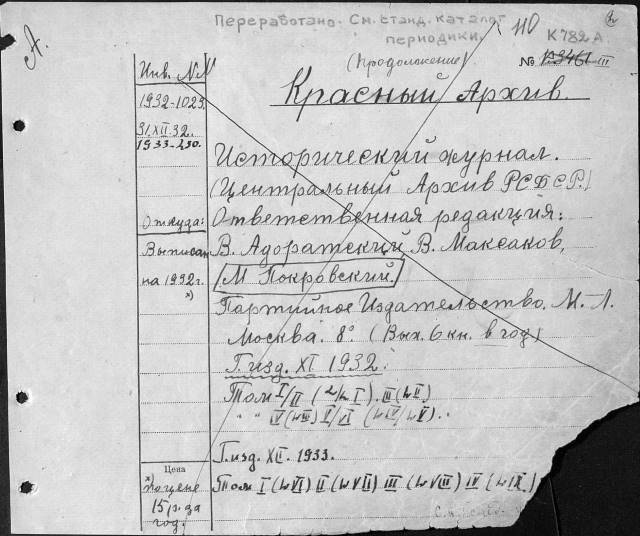 Переработано. См. станд. каталог
периодики.
А.
110
К 782 А
(продолжение)
№ Р3461-III
Инв. №№
Красный Архив.
1932-1023.
31.XII.32.
1933-230.
Исторический журнал.
(Центральный Архив РСФСР.)
Откуда:
Ответственная редакция:
Выписан
В. Адоратский, В. Максаков,
на 1932 г.
х)
М. Покровский.
Партийное Издательство. М. Л.
Москва. 8° (Вых. 6 кн. в год)
Г. изд. XI 1932.
Том I/II (L/L I). III (L II)
" " IV (L III) V/VI (L IV/L V)..
Г. изд. XII. 1933.
Цена
х) по цене
15 р. за
год.
Том I (L VI) II (L VII) III (L VIII) IV (L IX)